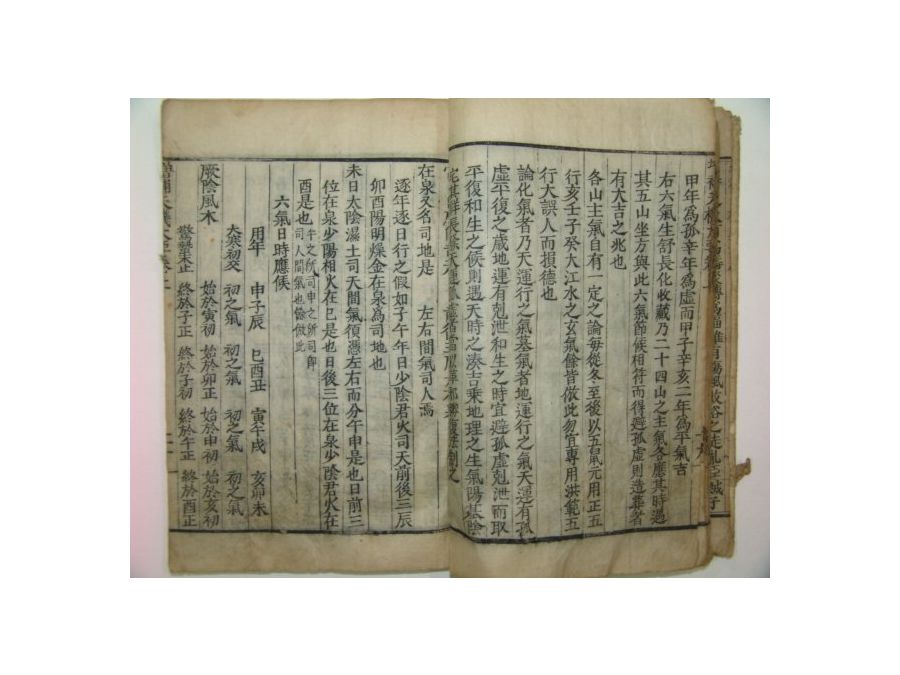 甲年爲孤辛年爲虛而甲子辛亥二年爲平氣吉
右六氣生舒長化收藏乃二十四山之主氣各應其時遇
其五山坐方與此六氣節候相符而得避孤虛則造葬者
有大吉之兆也
各山主氣自有一定之論每從冬至後以五鼠元用正五
行亥壬子癸大江水之玄氣餘皆倣此勿宜專用洪範五
行大誤人而損德也
論化氣者乃天運行之氣墓氣者地運行之氣天運有孤
虛平復之歲地運有剋泄和生之時宜避孤虛剋泄而取
平復和生之候則遇天時之湊吉乘地理之生氣陽基陰
在泉又名司地是 左右間氣司人焉
逐年逐日行之假如子午年日少陰君火司天前後三辰
卯酉陽明燥金在泉爲司地也
未日太陰濕土司天間氣須憑左右而分午申是也日前三
位在泉少陽相火在巳是也日後三位在泉少陰君火在
酉是也 午之所司申之所司卽司人間氣也餘倣此
六氣日時應候
用年 申子辰 巳酉丑 寅午戌 亥卯未
大寒初交 初之氣 初之氣 初之氣 初之氣
厥陰風木 始於寅初 始於卯正 始於申初 始於亥初
驚蟄末止 終於子正 終於子初 終於午正 終於酉正